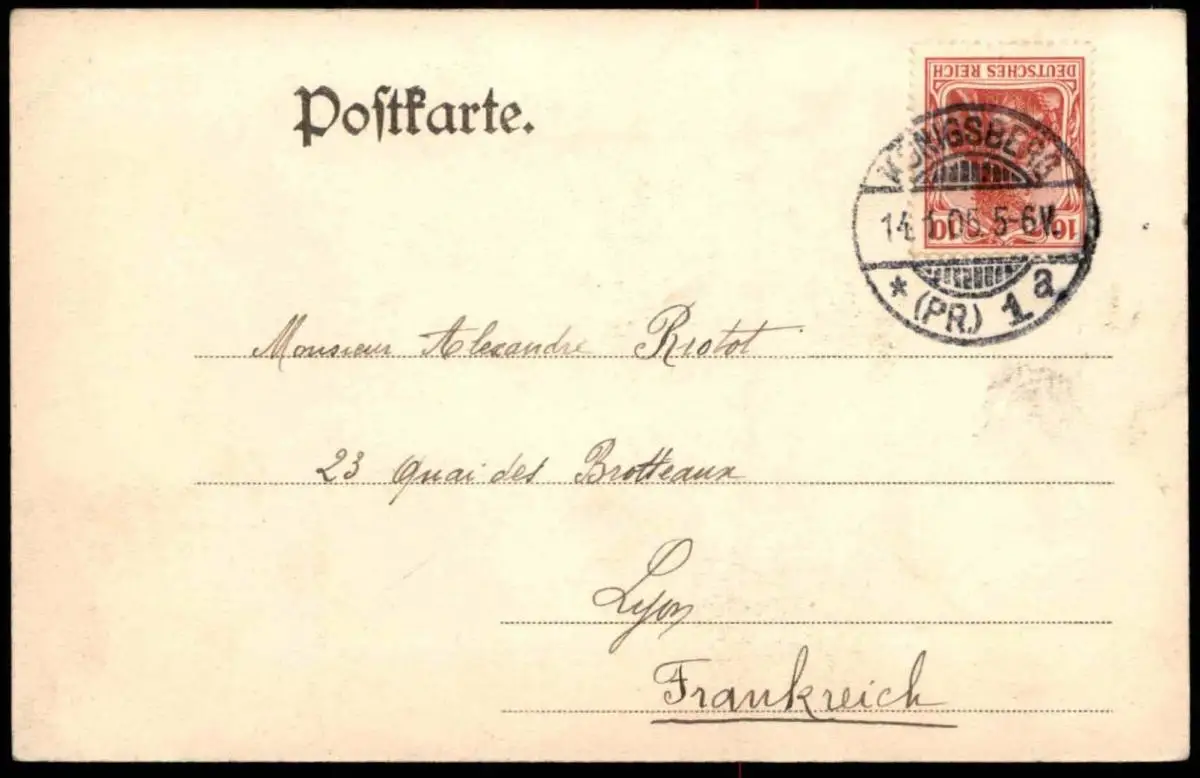 Postkarte.
DEUTSCHES REICH
10 10
KÖNIGSBERG
14.1.05. 5-6V.
* (PR.) 1a
Monsieur Alexandre Riotot
23 Quai des Brotteaux
Lyon
Frankreich